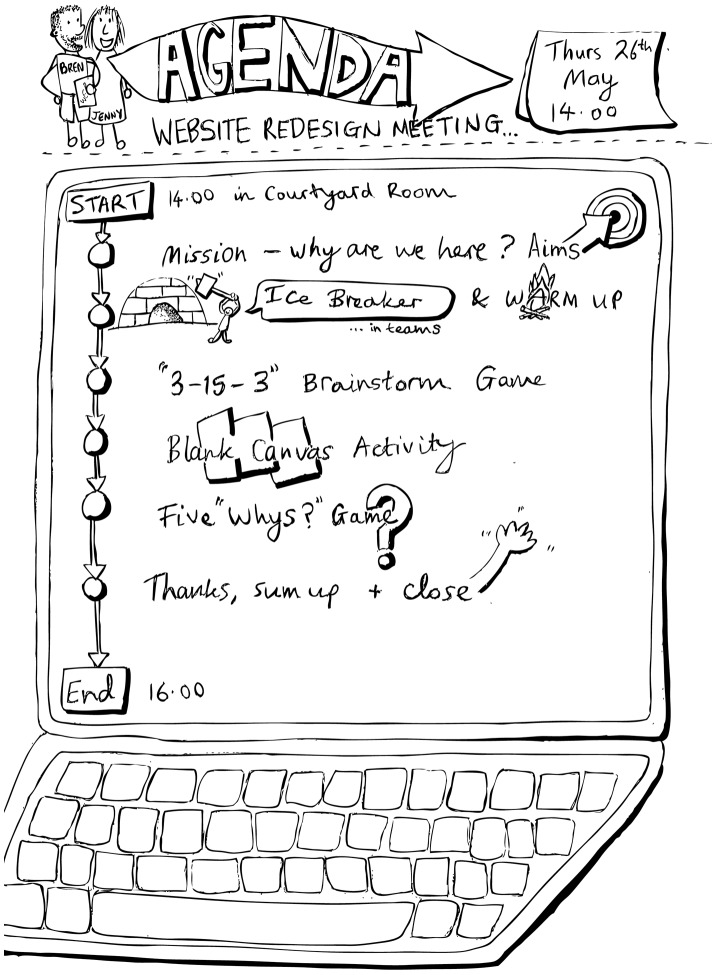 BREN
JENNY
AGENDA
Thurs 26th
May
14.00
WEBSITE REDESIGN MEETING...
START 14.00 in Courtyard Room
Mission - why are we here? Aims
Ice Breaker & WARM UP
... in teams
"3-15-3" Brainstorm Game
Blank Canvas Activity
Five "Whys?" Game
?
Thanks, sum up + close
End 16.00